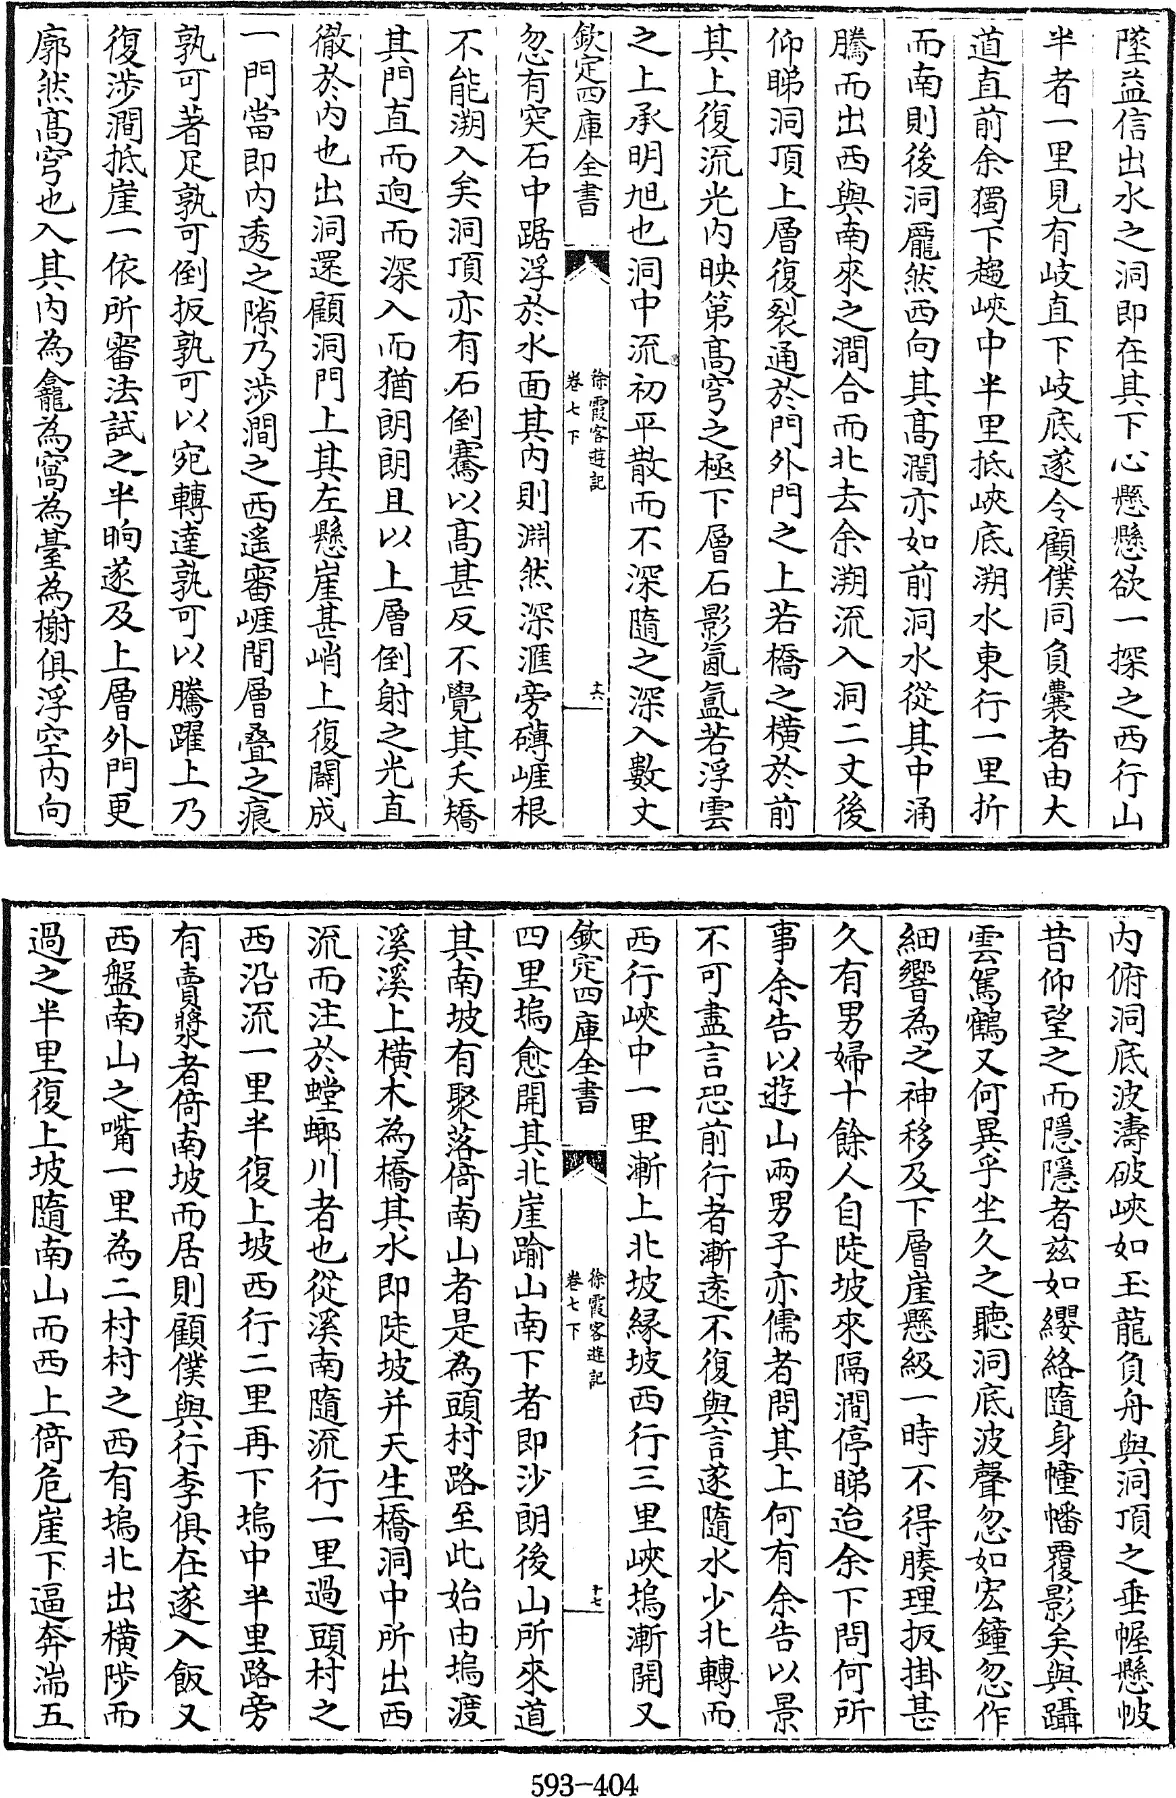 墜益信出水之洞即在其下心懸懸欲一探之西行山
半者一里見有岐直下岐底遂令顧僕同負囊者由大
道直前余獨下趨峽中半里抵峽底溯水東行一里折
而南則後洞龎然西向其髙濶亦如前洞水從其中涌
騰而出西與南來之澗合而北去余溯流入洞二丈後
仰睇洞頂上層復裂通於門外門之上若橋之橫於前
其上復流光内映第髙穹之極下層石影氤氲若浮雲
之上承明旭也洞中流初平散而不深隨之深入數丈
欽定四庫全書
徐霞客遊記
卷七下
十六
忽有突石中踞浮於水面其内則淵然深滙旁磚崕根
不能溯入矣洞頂亦有石倒騫以髙甚反不覺其夭矯
其門直而逈而深入而猶朗朗且以上層倒射之光直
徹於内也出洞還顧洞門上其左懸崖甚峭上復闢成
一門當即内透之隙乃涉澗之西遙審崕間層叠之痕
孰可著足孰可倒扳孰可以宛轉達孰可以騰躍上乃
復涉澗抵崖一依所審法試之半晌遂及上層外門更
廓然髙穹也入其内為龕為窩為臺為榭俱浮空内向
内俯洞底波濤破峽如玉龍負舟與洞頂之垂幄懸帔
昔仰望之而隱隱者兹如纓絡隨身幢幡覆影矣與躡
雲駕鶴又何異乎坐久之聽洞底波聲忽如宏鐘忽作
細響為之神移及下層崖懸級一時不得腠理扳掛甚
久有男婦十餘人自陡坡來隔澗停睇迨余下問何所
事余告以遊山兩男子亦儒者問其上何有余告以景
不可盡言恐前行者漸逺不復與言遂隨水少北轉而
西行峽中一里漸上北坡緣坡西行三里峽塢漸開又
欽定四庫全書
徐霞客遊記
卷七下
十七
四里塢愈開其北崖踰山南下者即沙朗後山所來道
其南坡有聚落倚南山者是為頭村路至此始由塢渡
溪溪上橫木為橋其水即陡坡并天生橋洞中所出西
流而注於螳螂川者也從溪南隨流行一里過頭村之
西沿流一里半復上坡西行二里再下塢中半里路旁
有賣漿者倚南坡而居則顧僕與行李俱在遂入飯又
西盤南山之嘴一里為二村村之西有塢北出橫陟而
過之半里復上坡隨南山而西上倚危崖下逼奔湍五
593-404